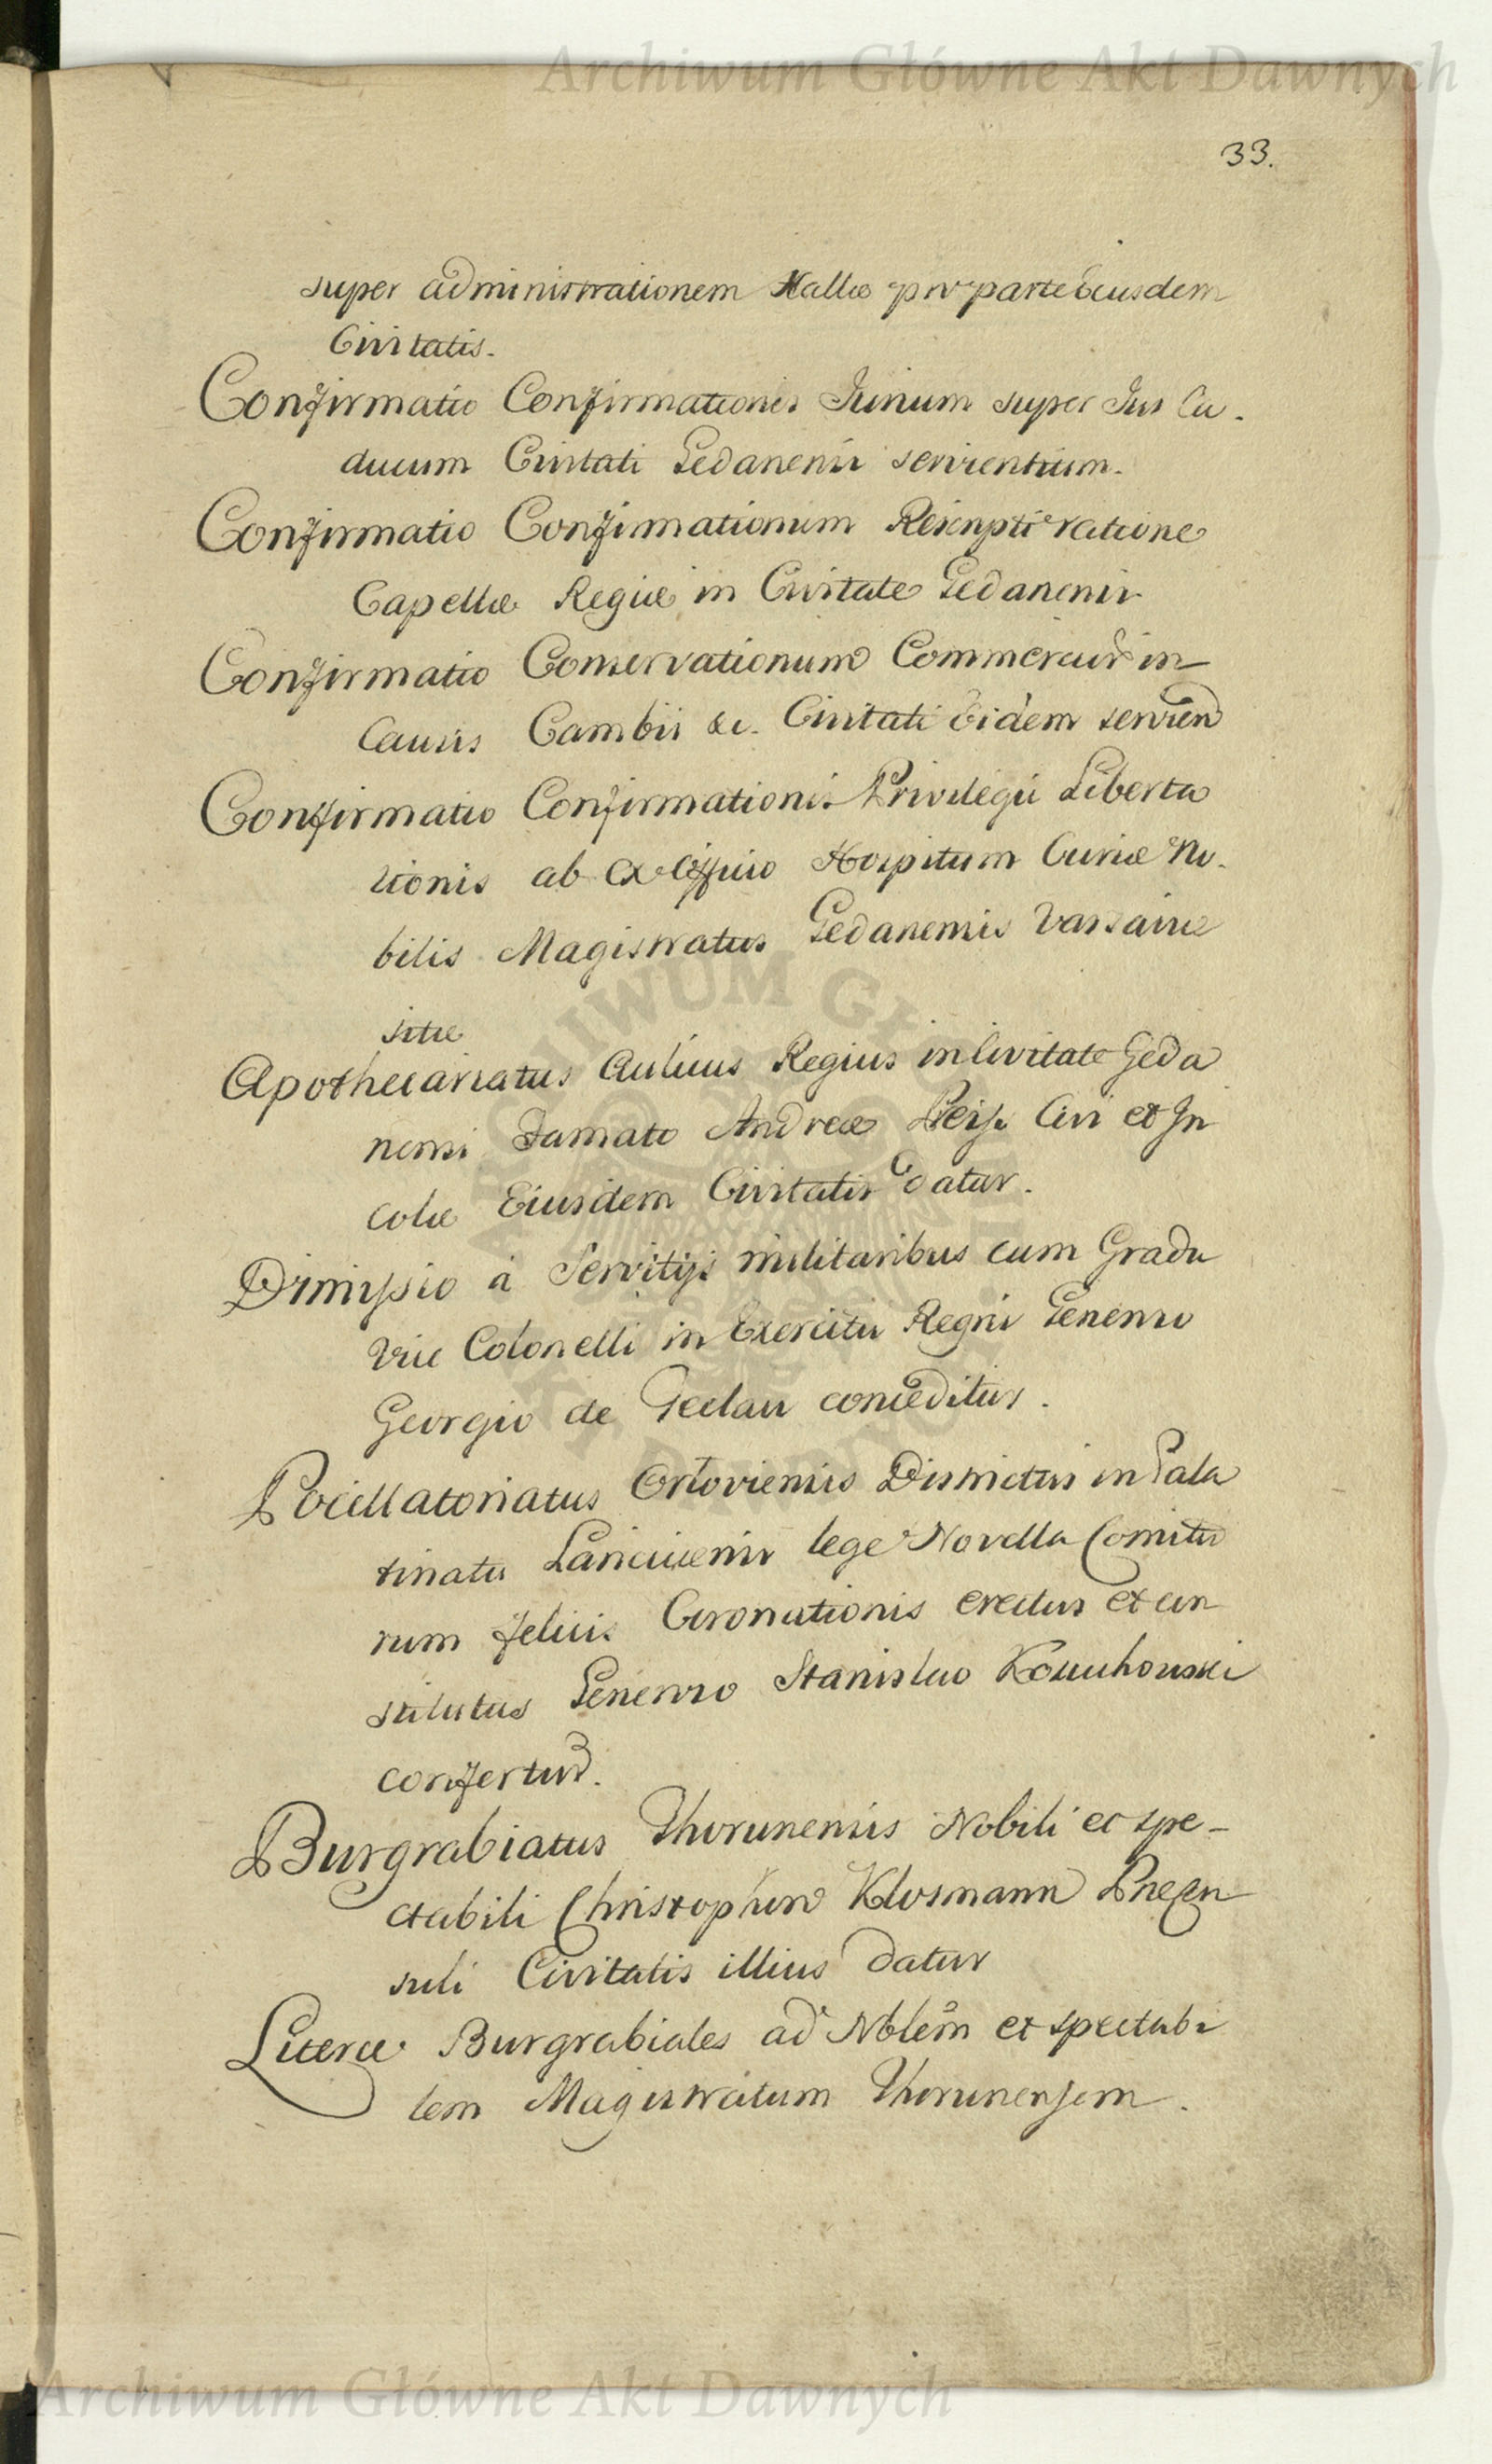 Archiwum Główne Akt Dawnych
33.
super administrationem Hallæ pro parte eiusdem
Civitatis.
Confirmatio Confirmationis Jurium super Jus Ca-
ducum Civitati Gedanensi servientium.
Confirmatio Confirmationum Rescripti ratione
Capellæ Regiæ in Civitate Gedanensi
Confirmatio Conservationum Commerciis in
Causis Cambii &c. Civitati Eidem servien
Confirmatio Confirmationis Privilegii Liberta
tionis ab ex officio Hospitum Curiæ No-
bilis Magistratus Gedanensis Varsaviæ
sitæ
Apothecariatus Aulicus Regius in Civitate Geda
nensi Famato Andreæ Civi et In
colæ Eiusdem Civitatis datur.
Dimissio a Servitijs militaribus cum Gradu
Vice Colonelli in Exercitu Regni Generoso
Georgio de conceditur.
Pocillatoriatus Orloviensis Districtus in Pala
tinatu Lanciciensi lege Novella Comitio
rum felicis Coronationis erectus et con
stitutus Generoso Stanislao Kossuchowski
confertur.
Burgrabiatus Thorunensis Nobili et spe-
ctabili Christophoro Klosmann Præcon
suli Civitatis illius datur
Literæ Burgrabiales ad Nblem et spectabi
lem Magistratum Thorunensem.
Archiwum Główne Akt Dawnych